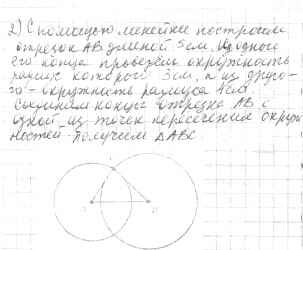 2) С помощью линейки построим
отрезок АВ длиной 5см. Из одного
его конца проведем окружность
радиус которого 3см, а из друго-
го - окружность радиуса 4см.
Соединим концы отрезка АВ с
одной из точек пересечения окруж
ностей получаем ΔАВС